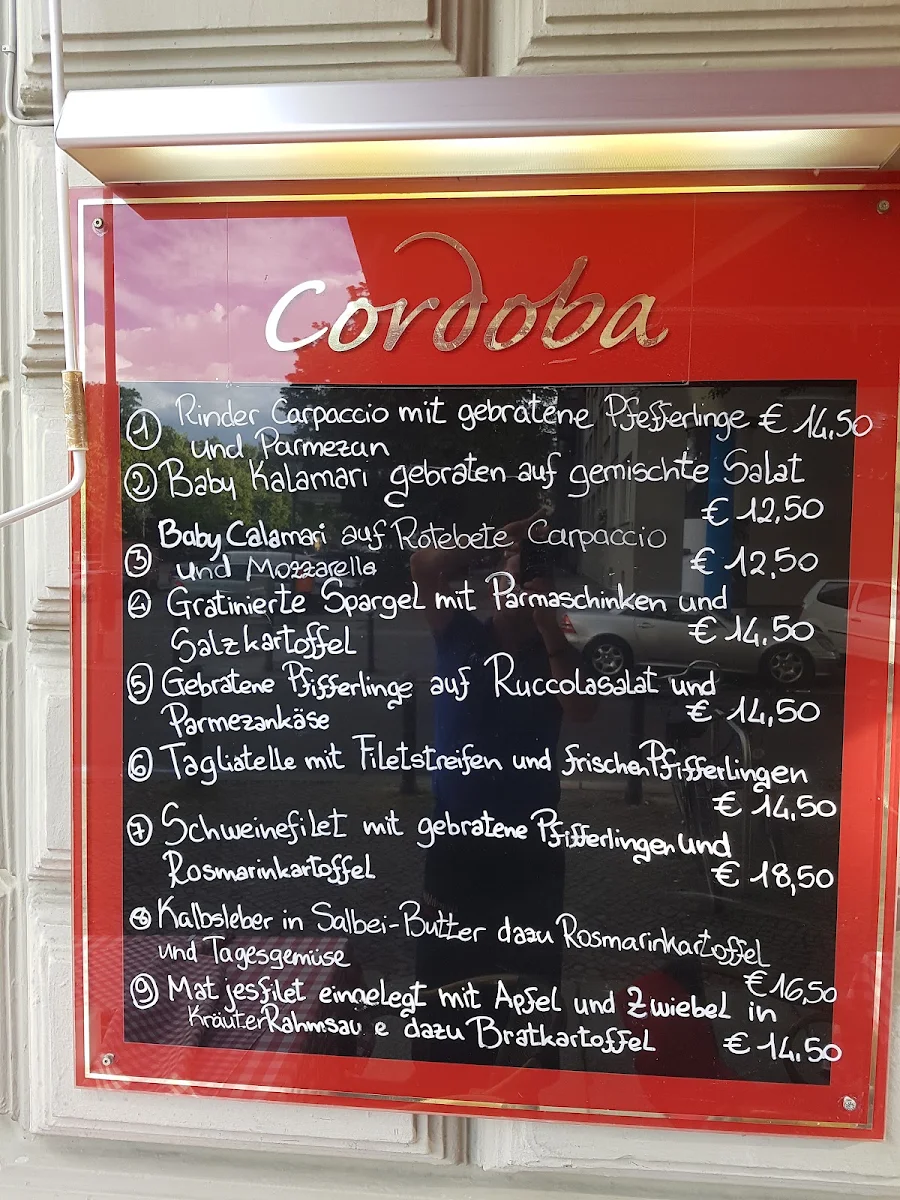 Cordoba
1 Rinder Carpaccio mit gebratene Pfefferlinge € 14,50
und Parmezan
2 Baby Kalamari gebraten auf gemischte Salat
€ 12,50
Baby Calamari auf Rotebete Carpaccio
3 und Mozzarella € 12,50
4 Gratinierte Spargel mit Parmaschinken und
Salzkartoffel € 14,50
5 Gebratene Pfifferlinge auf Ruccolasalat und
Parmezankäse € 14,50
6 Tagliatelle mit Filetstreifen und frischen Pfifferlingen
€ 14,50
7 Schweinefilet mit gebratene Pfifferlingen und
Rosmarinkartoffel € 18,50
8 Kalbsleber in Salbei-Butter dazu Rosmarinkartoffel
und Tagesgemüse € 16,50
9 Matjesfilet eingelegt mit Apfel und Zwiebel in
KräuterRahmsau e dazu Bratkartoffel € 14.50